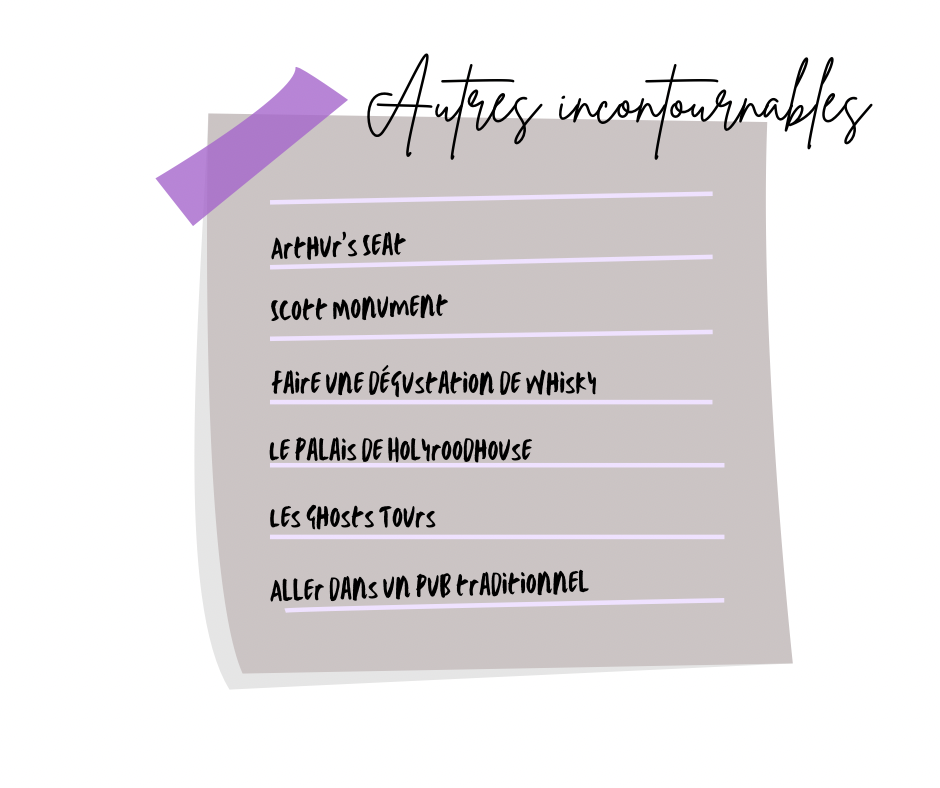 Autres incontournables
Arthur's Seat
Scott Monument
Faire une dégustation de whisky
Le Palais de Holyroodhouse
Les Ghosts Tours
Aller dans un pub traditionnel